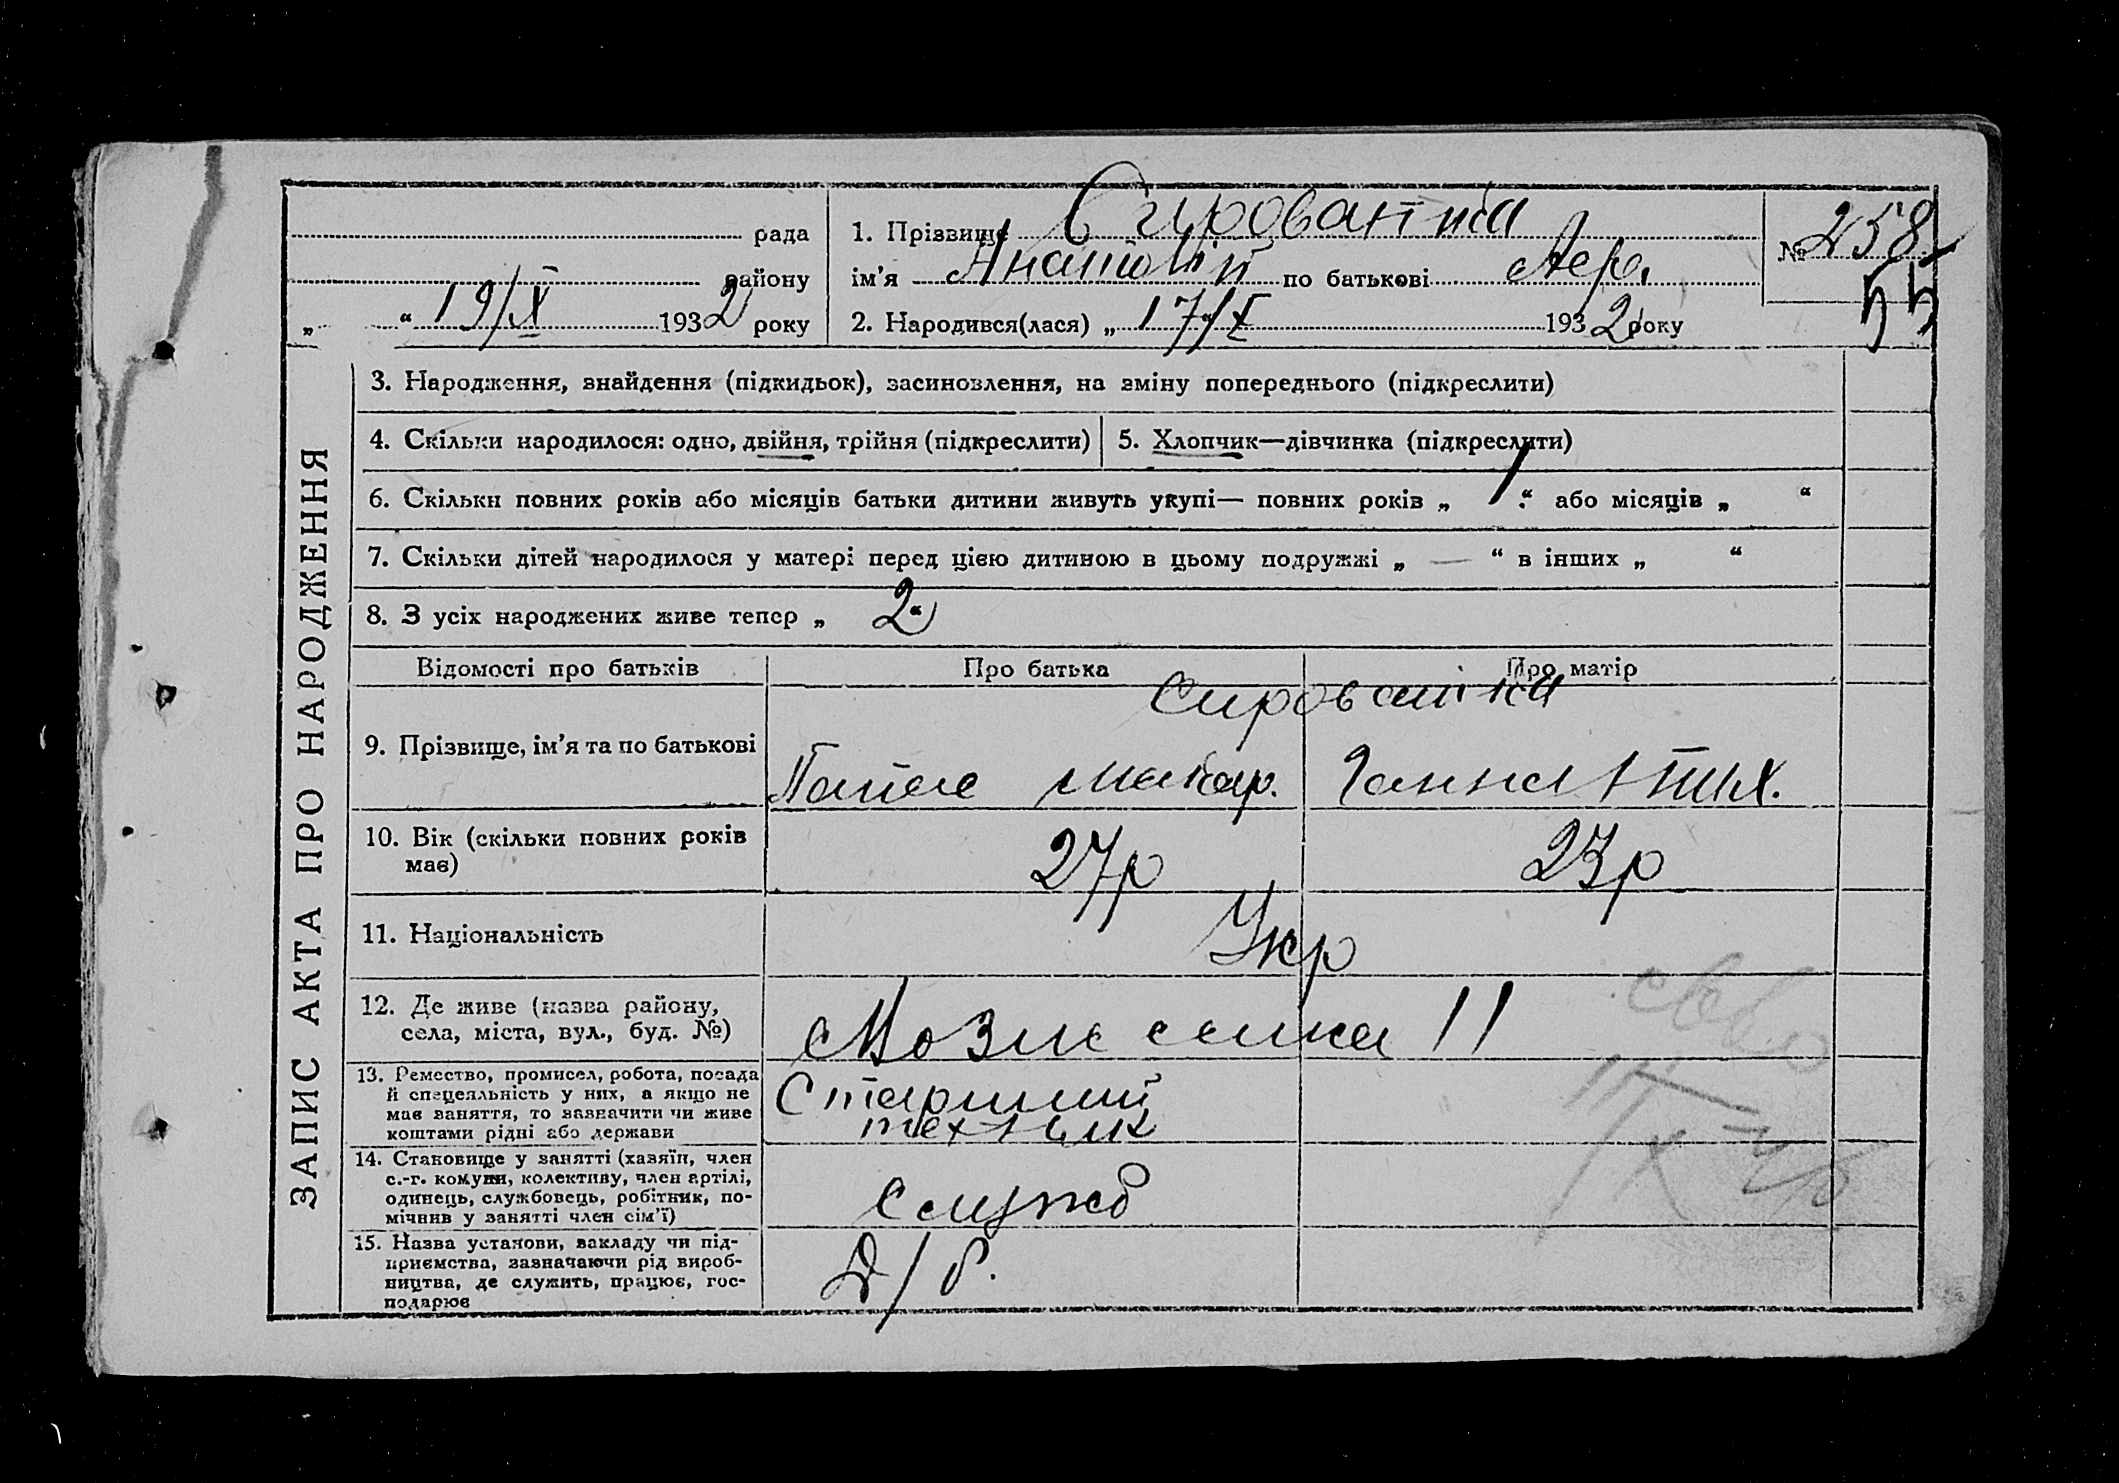 рада
району
„ “ 19/X 1932 року
1. Прізвище Сироватка
ім’я Анатолій по батькові
2. Народився(лася) „ 17/X 1932 року
№ 258
55
ЗАПИС АКТА ПРО НАРОДЖЕННЯ
3. Народження, знайдення (підкидьок), засиновлення, на зміну попереднього (підкреслити)
4. Скільки народилося: одно, двійня, трійня (підкреслити)
5. Хлопчик—дівчинка (підкреслити)
6. Скільки повних років або місяців батьки дитини живуть укупі— повних років „ 1 “ або місяців „ “
7. Скільки дітей народилося у матері перед цією дитиною в цьому подружжі „ — “ в інших „ “
8. З усіх народжених живе тепер „ 2 “
Відомості про батьків Про батька Про матір
Сироватка
9. Прізвище, ім’я та по батькові
макар. Ганна
10. Вік (скільки повних років
має)
27р 23р
11. Національність
Укр
12. Де живе (назва району,
села, міста, вул., буд. №)
11
13. Ремество, промисел, робота, посада
й спецеяльність у них, а якщо не
має заняття, то зазначити чи живе
коштами рідні або держави
Старший
технік
14. Становище у занятті (хазяїн, член
с.-г. комуни, колективу, член артілі,
одинець, службовець, робітник, по-
мічнив у занятті член сім’ї)
служб
15. Назва установи, закладу чи під-
приємства, зазначаючи рід вироб-
ництва, де служить, працює, гос-
подарює